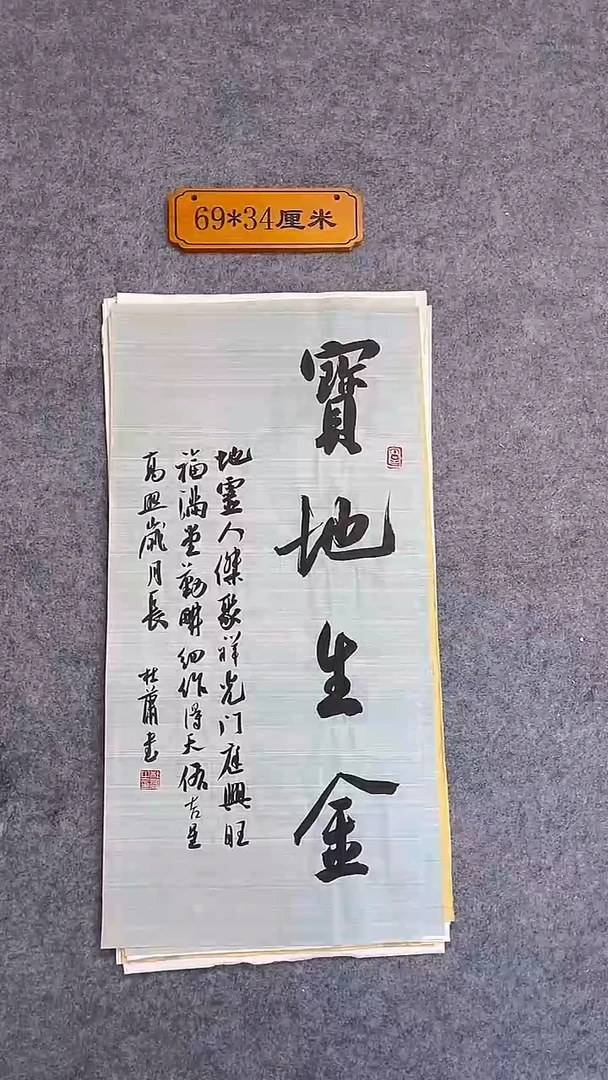 69*34厘米
寶地生金
地靈人傑聚祥光门庭興旺
福满堂勤耕细作得天佑吉星
高照歲月長
杜蕭书